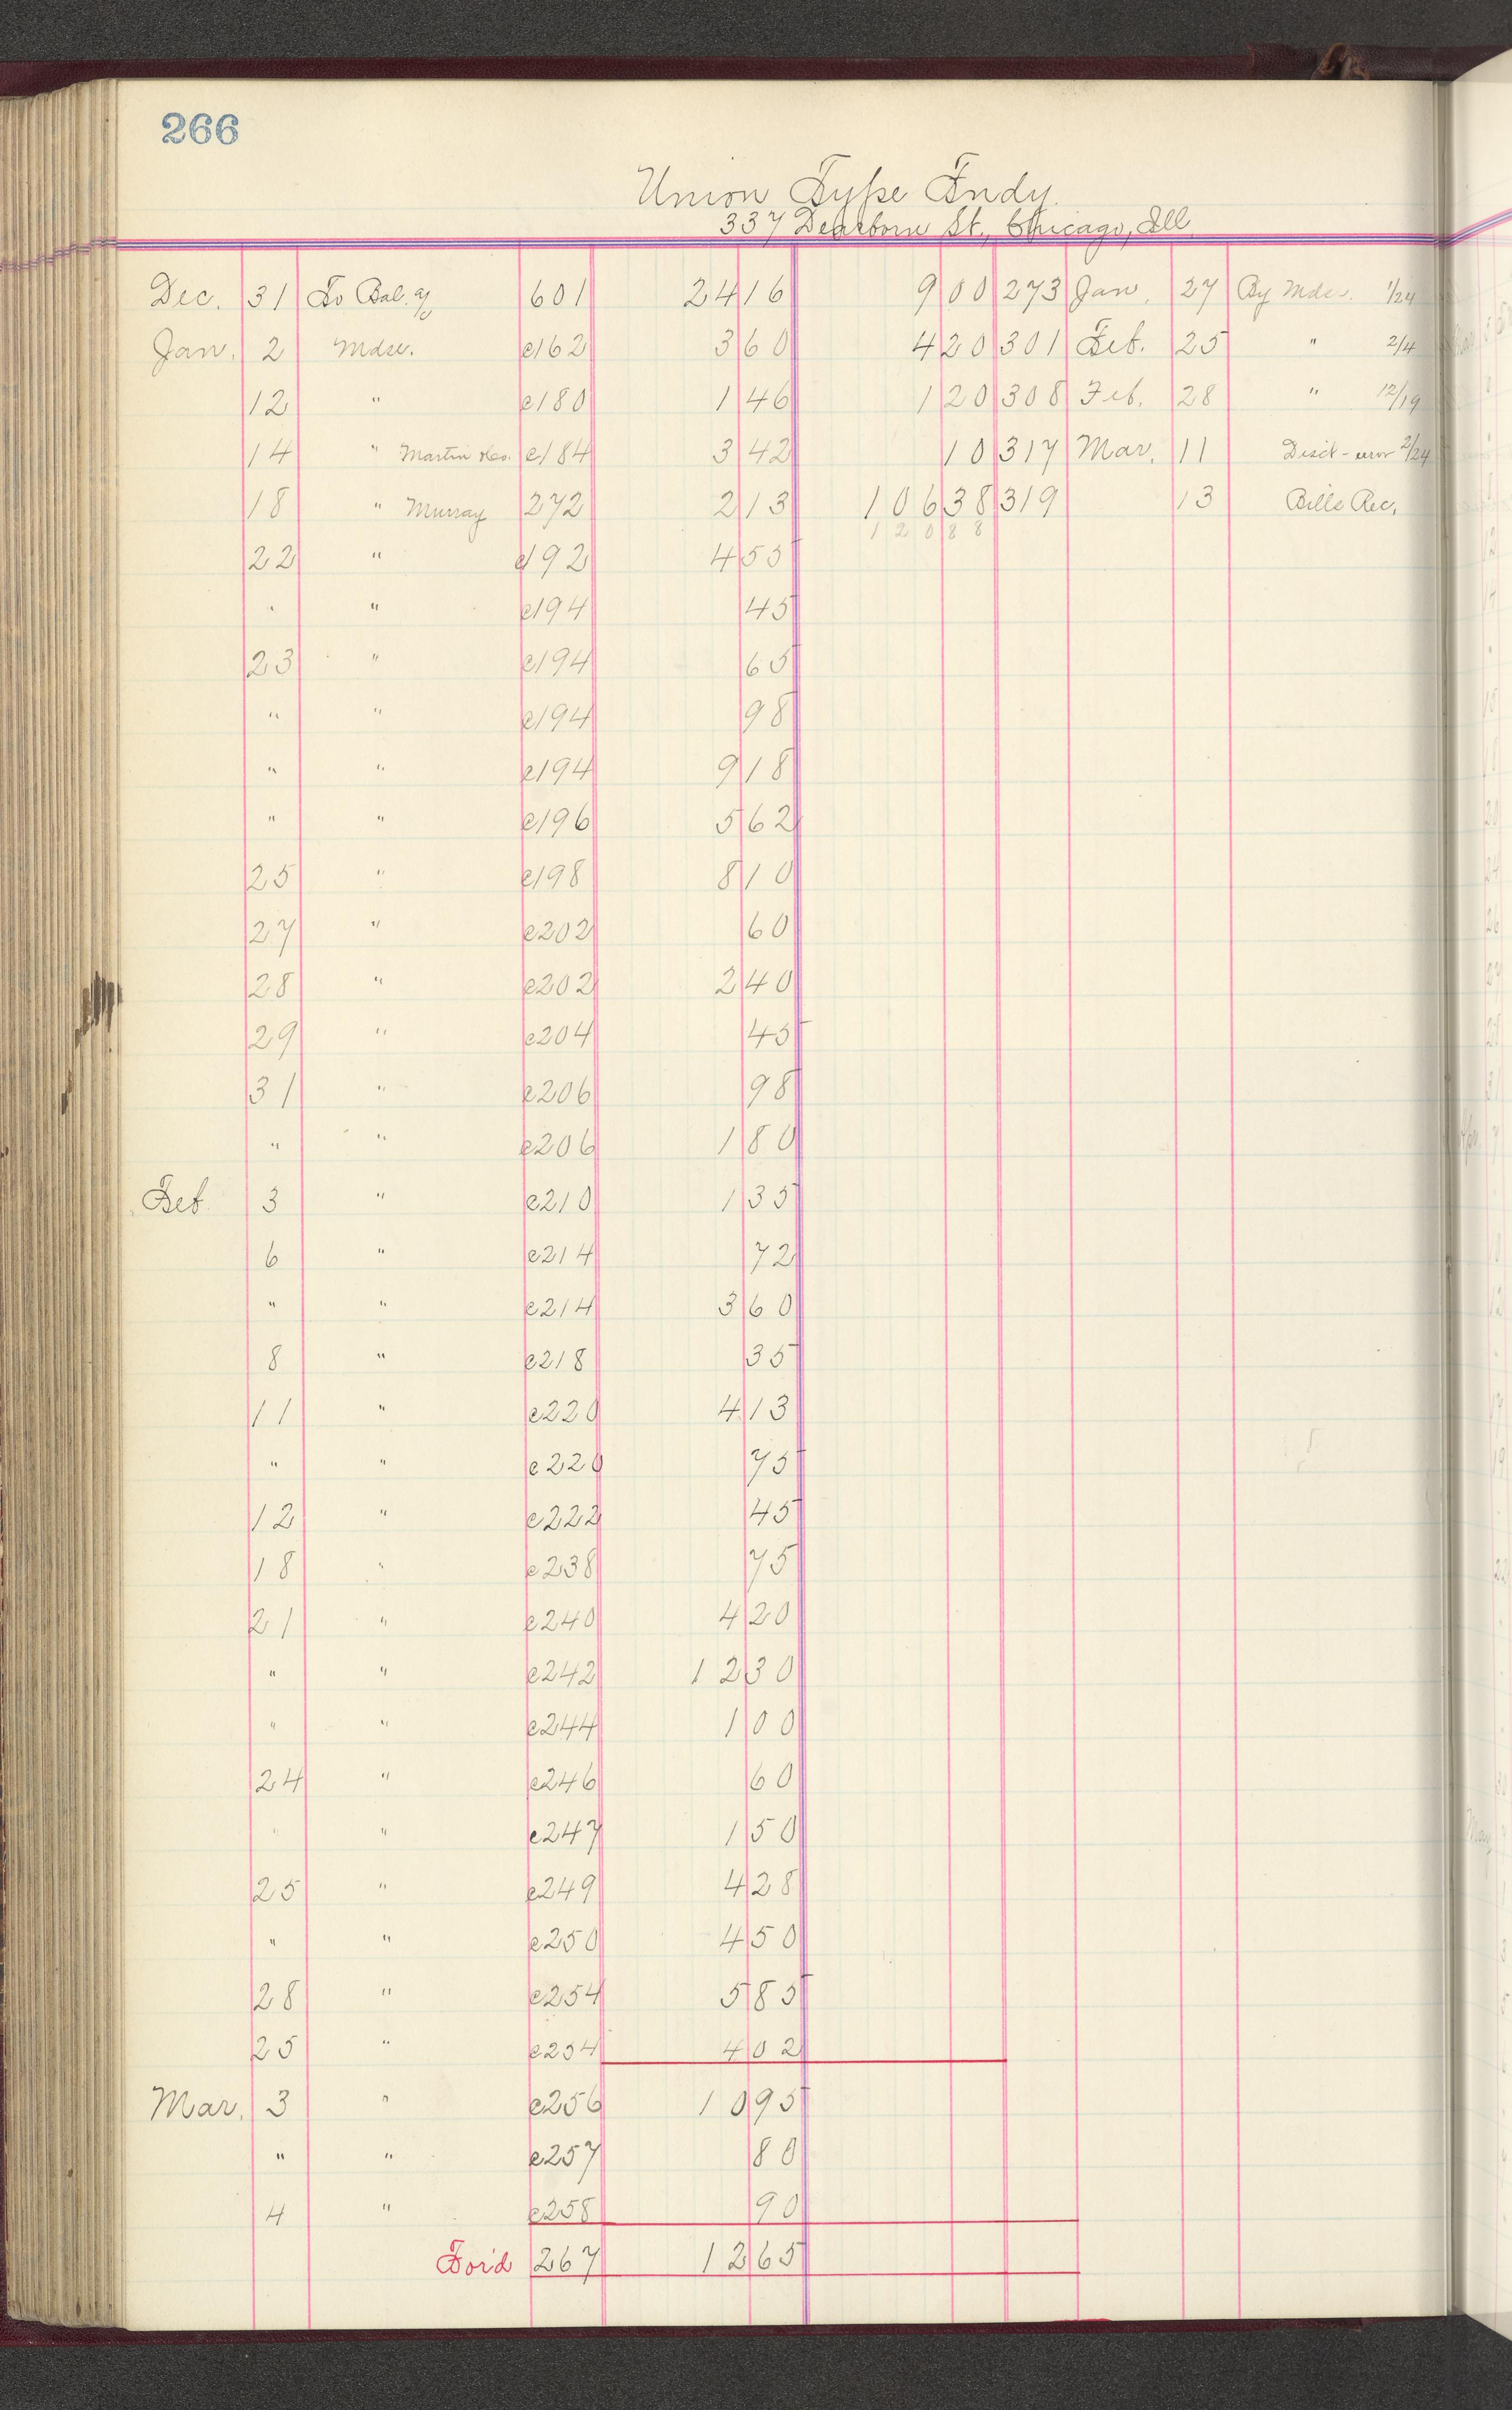 266
Union Type Fndy.
337 Dearborn St., Chicago, Ill
Dec. 31 To Bal. a/c 601 24 16 9 00 273 Jan. 27 By Mdse. 1/24
Jan. 2 Mdse. c162 3 60 4 20 301 Feb. 25 " 2/4
12 " c180 1 46 1 20 308 Feb. 28 " 12/19
14 " Martin c184 3 42 10 317 Mar. 11 Disct - error 2/24
18 " Murray 272 2 13 106 38 319 13 Bills Rec.
120 88
22 " c192 4 55
" " c194 45
23 " c194 65
" " c194 98
" " c194 9 18
" " c196 5 62
25 " c198 8 10
27 " c202 60
28 " c202 2 40
29 " c204 45
31 " c206 98
" " c206 1 80
Feb. 3 " c210 1 35
6 " c214 72
" " c214 3 60
8 " c218 35
11 " c220 4 13
" " c220 75
12 " c222 45
18 " c238 75
21 " c240 4 20
" " c242 12 30
" " c244 1 00
24 " c246 60
" " c247 1 50
25 " c249 4 28
" " c250 4 50
28 " c254 5 85
25 " c254 4 02
Mar. 3 " c256 10 95
" " c257 80
4 " c258 90
For'd 267 12 65